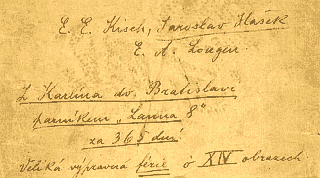 E. E. Kisch, Jaroslav Hašek
E. A. Longen
Z Karlína do Bratislavi
parníkem „Lanna 8“
za 365 dní
Veliká výpravná férie o XIV obrazech